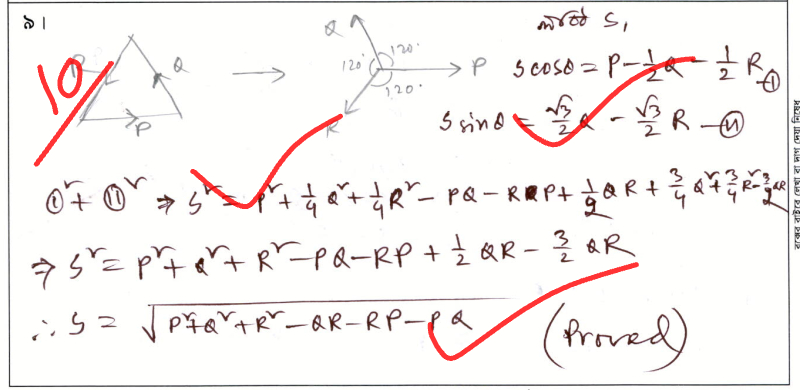 ৯।
10
P Q P
Q 120° 120° 120° P R
লব্ধি S,
S cosθ = P - 1/2 Q - 1/2 R —(i)
S sinθ = √3/2 Q - √3/2 R —(ii)
(i)² + (ii)² ⇒ S² = P² + 1/4 Q² + 1/4 R² - PQ - RP + 1/2 QR + 3/4 Q² + 3/4 R² - 3/2 QR
⇒ S² = P² + Q² + R² - PQ - RP + 1/2 QR - 3/2 QR
∴ S = √(P² + Q² + R² - QR - RP - PQ) (Proved)